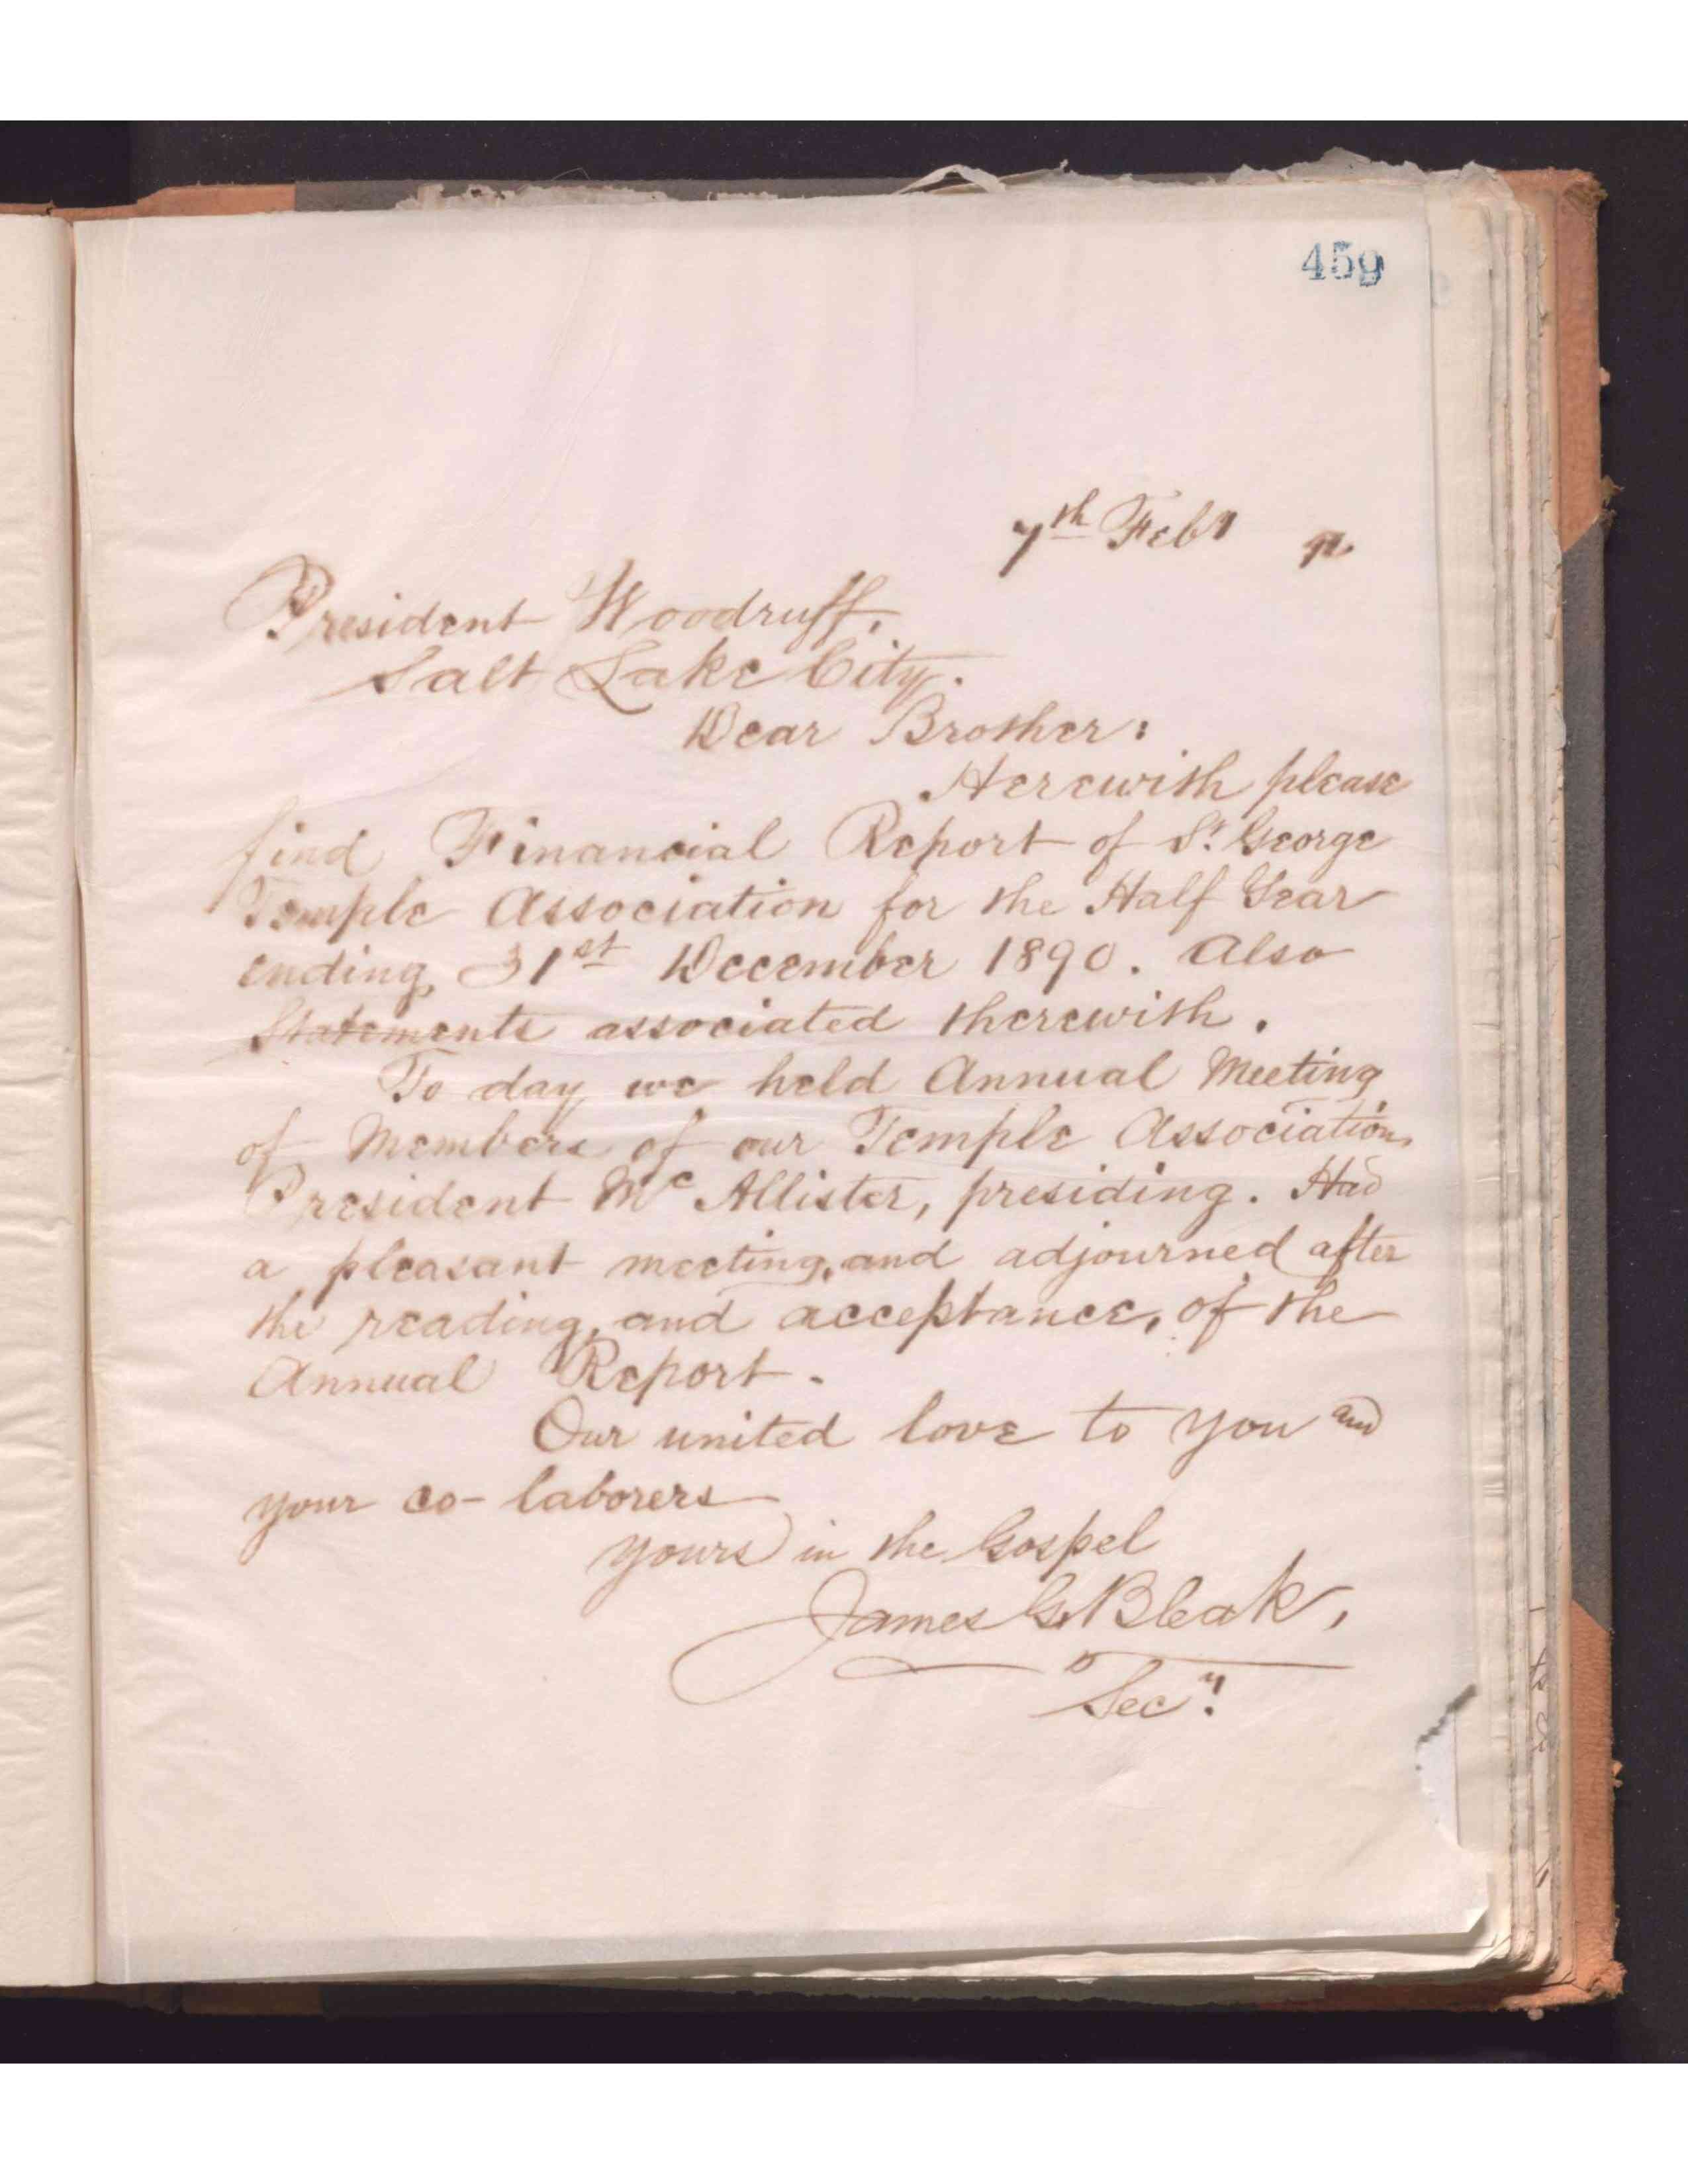 459
7th Feby 91.
President Woodruff,
Salt Lake City.
Dear Brother:
Herewith please
find Financial Report of St. George
Temple Association for the Half Year
ending 31st December 1890. Also
Statements associated therewith.
To day we held Annual Meeting
of Members of our Temple Association,
President McAllister, presiding. Had
a pleasant meeting, and adjourned after
the reading, and acceptance, of the
Annual Report.
Our united love to you and
your co-laborers
yours in the Gospel
James G. Bleak,
Secy.